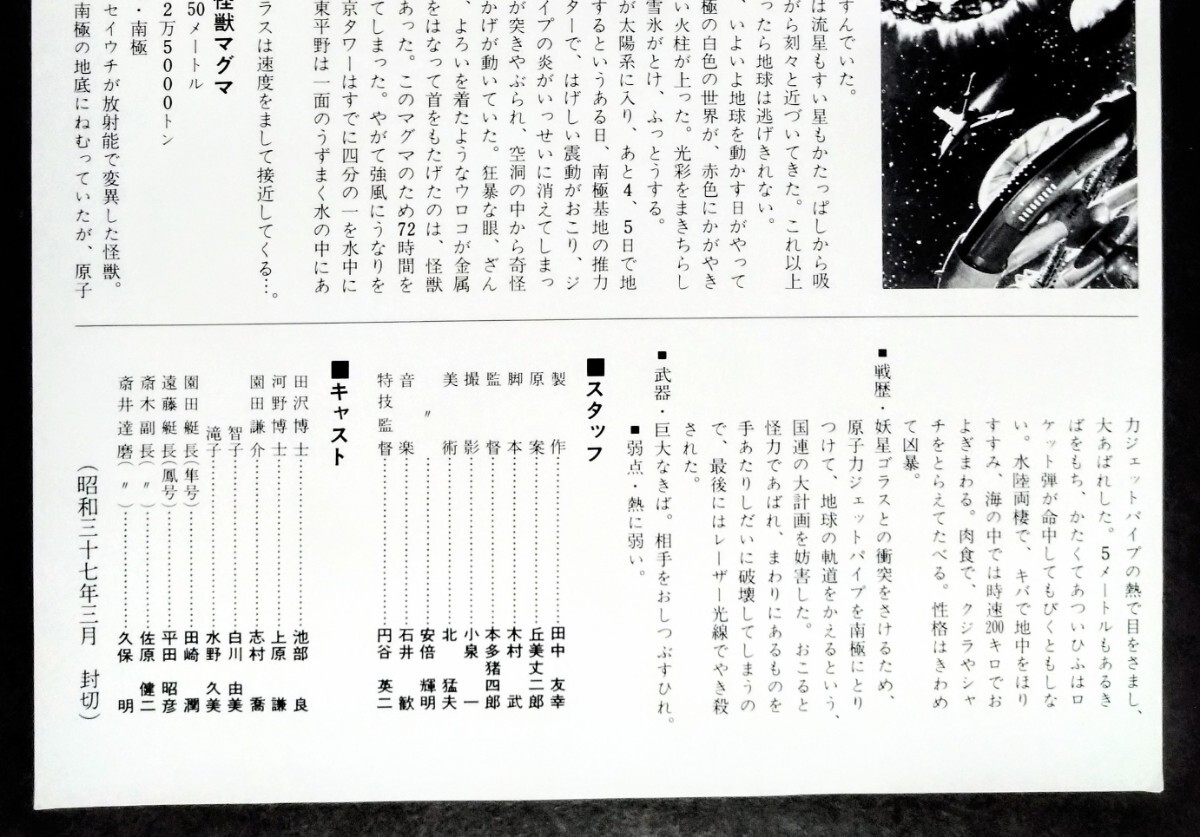 すんでいた。
は流星もすい星もかたっぱしから吸
がら刻々と近づいてきた。これ以上
ったら地球は逃げきれない。
、いよいよ地球を動かす日がやって
極の白色の世界が、赤色にかがやき
い火柱が上った。光彩をまきちらし
雪氷がとけ、ふっとうする。
が太陽系に入り、あと4、5日で地
するというある日、南極基地の推力
ターで、はげしい震動がおこり、ジ
イプの炎がいっせいに消えてしまっ
が突きやぶられ、空洞の中から奇怪
かげが動いていた。狂暴な眼、ざん
、よろいを着たようなウロコが金属
をはなって首をもたげたのは、怪獣
あった。このマグマのため72時間を
てしまった。やがて強風にうなりを
京タワーはすでに四分の一を水中に
東平野は一面のうずまく水の中にあ
ラスは速度をまして接近してくる…。
怪獣マグマ
50メートル
2万5000トン
・南極
セイウチが放射能で変異した怪獣。
南極の地底にねむっていたが、原子
力ジェットパイプの熱で目をさまし、
大あばれした。5メートルもあるき
ばをもち、かたくてあついひふはロ
ケット弾が命中してもびくともしな
い。水陸両棲で、キバで地中をほり
すすみ、海の中では時速200キロでお
よぎまわる。肉食で、クジラやシャ
チをとらえてたべる。性格はきわめ
て凶暴。
■戦歴・妖星ゴラスとの衝突をさけるため、
原子力ジェットパイプを南極にとり
つけて、地球の軌道をかえるという、
国連の大計画を妨害した。おこると
怪力であばれ、まわりにあるものを
手あたりしだいに破壊してしまうの
で、最後にはレーザー光線でやき殺
された。
■武器・巨大なきば。相手をおしつぶすひれ。
■弱点・熱に弱い。
■スタッフ
製作………田中友幸
原案………丘美丈二郎
脚本………木村武
監督………本多猪四郎
撮影………小泉一
美術………北猛夫
〃………安倍輝明
音楽………石井歓
特技監督………円谷英二
■キャスト
田沢博士………池部良
河野博士………上原謙
園田謙介………志村喬
智子………白川由美
滝子………水野久美
園田艇長(隼号)………田崎潤
遠藤艇長(鳳号)………平田昭彦
斎木副長(〃)………佐原健二
斎井達磨(〃)………久保明
(昭和三十七年三月 封切)